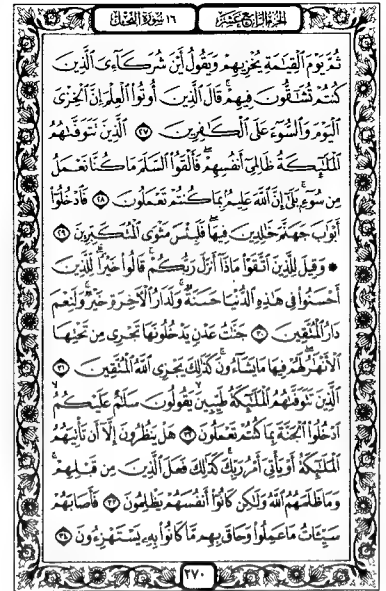 الجزء الرابع عشر
١٦ سورة النحل
ثُمَّ يَوْمَ ٱلْقِيَٰمَةِ يُخْزِيهِمْ وَيَقُولُ أَيْنَ شُرَكَآءِىَ ٱلَّذِينَ
كُنتُمْ تُشَٰٓقُّونَ فِيهِمْ ۚ قَالَ ٱلَّذِينَ أُوتُوا۟ ٱلْعِلْمَ إِنَّ ٱلْخِزْىَ
ٱلْيَوْمَ وَٱلسُّوٓءَ عَلَى ٱلْكَٰفِرِينَ ٢٧ ٱلَّذِينَ تَتَوَفَّىٰهُمُ
ٱلْمَلَٰٓئِكَةُ ظَالِمِىٓ أَنفُسِهِمْ ۖ فَأَلْقَوُا۟ ٱلسَّلَمَ مَا كُنَّا نَعْمَلُ
مِن سُوٓءٍۭ ۚ بَلَىٰٓ إِنَّ ٱللَّهَ عَلِيمٌۢ بِمَا كُنتُمْ تَعْمَلُونَ ٢٨ فَٱدْخُلُوٓا۟
أَبْوَٰبَ جَهَنَّمَ خَٰلِدِينَ فِيهَا ۖ فَلَبِئْسَ مَثْوَى ٱلْمُتَكَبِّرِينَ ٢٩
۞ وَقِيلَ لِلَّذِينَ ٱتَّقَوْا۟ مَاذَآ أَنزَلَ رَبُّكُمْ ۚ قَالُوا۟ خَيْرًا ۗ لِّلَّذِينَ
أَحْسَنُوا۟ فِى هَٰذِهِ ٱلدُّنْيَا حَسَنَةٌ ۚ وَلَدَارُ ٱلْـَٔاخِرَةِ خَيْرٌ ۚ وَلَنِعْمَ
دَارُ ٱلْمُتَّقِينَ ٣٠ جَنَّٰتُ عَدْنٍ يَدْخُلُونَهَا تَجْرِى مِن تَحْتِهَا
ٱلْأَنْهَٰرُ ۖ لَهُمْ فِيهَا مَا يَشَآءُونَ ۚ كَذَٰلِكَ يَجْزِى ٱللَّهُ ٱلْمُتَّقِينَ ٣١
ٱلَّذِينَ تَتَوَفَّىٰهُمُ ٱلْمَلَٰٓئِكَةُ طَيِّبِينَ ۙ يَقُولُونَ سَلَٰمٌ عَلَيْكُمُ
ٱدْخُلُوا۟ ٱلْجَنَّةَ بِمَا كُنتُمْ تَعْمَلُونَ ٣٢ هَلْ يَنظُرُونَ إِلَّآ أَن تَأْتِيَهُمُ
ٱلْمَلَٰٓئِكَةُ أَوْ يَأْتِىَ أَمْرُ رَبِّكَ ۚ كَذَٰلِكَ فَعَلَ ٱلَّذِينَ مِن قَبْلِهِمْ ۚ
وَمَا ظَلَمَهُمُ ٱللَّهُ وَلَٰكِن كَانُوٓا۟ أَنفُسَهُمْ يَظْلِمُونَ ٣٣ فَأَصَابَهُمْ
سَيِّـَٔاتُ مَا عَمِلُوا۟ وَحَاقَ بِهِم مَّا كَانُوا۟ بِهِۦ يَسْتَهْزِءُونَ ٣٤
٢٧٠